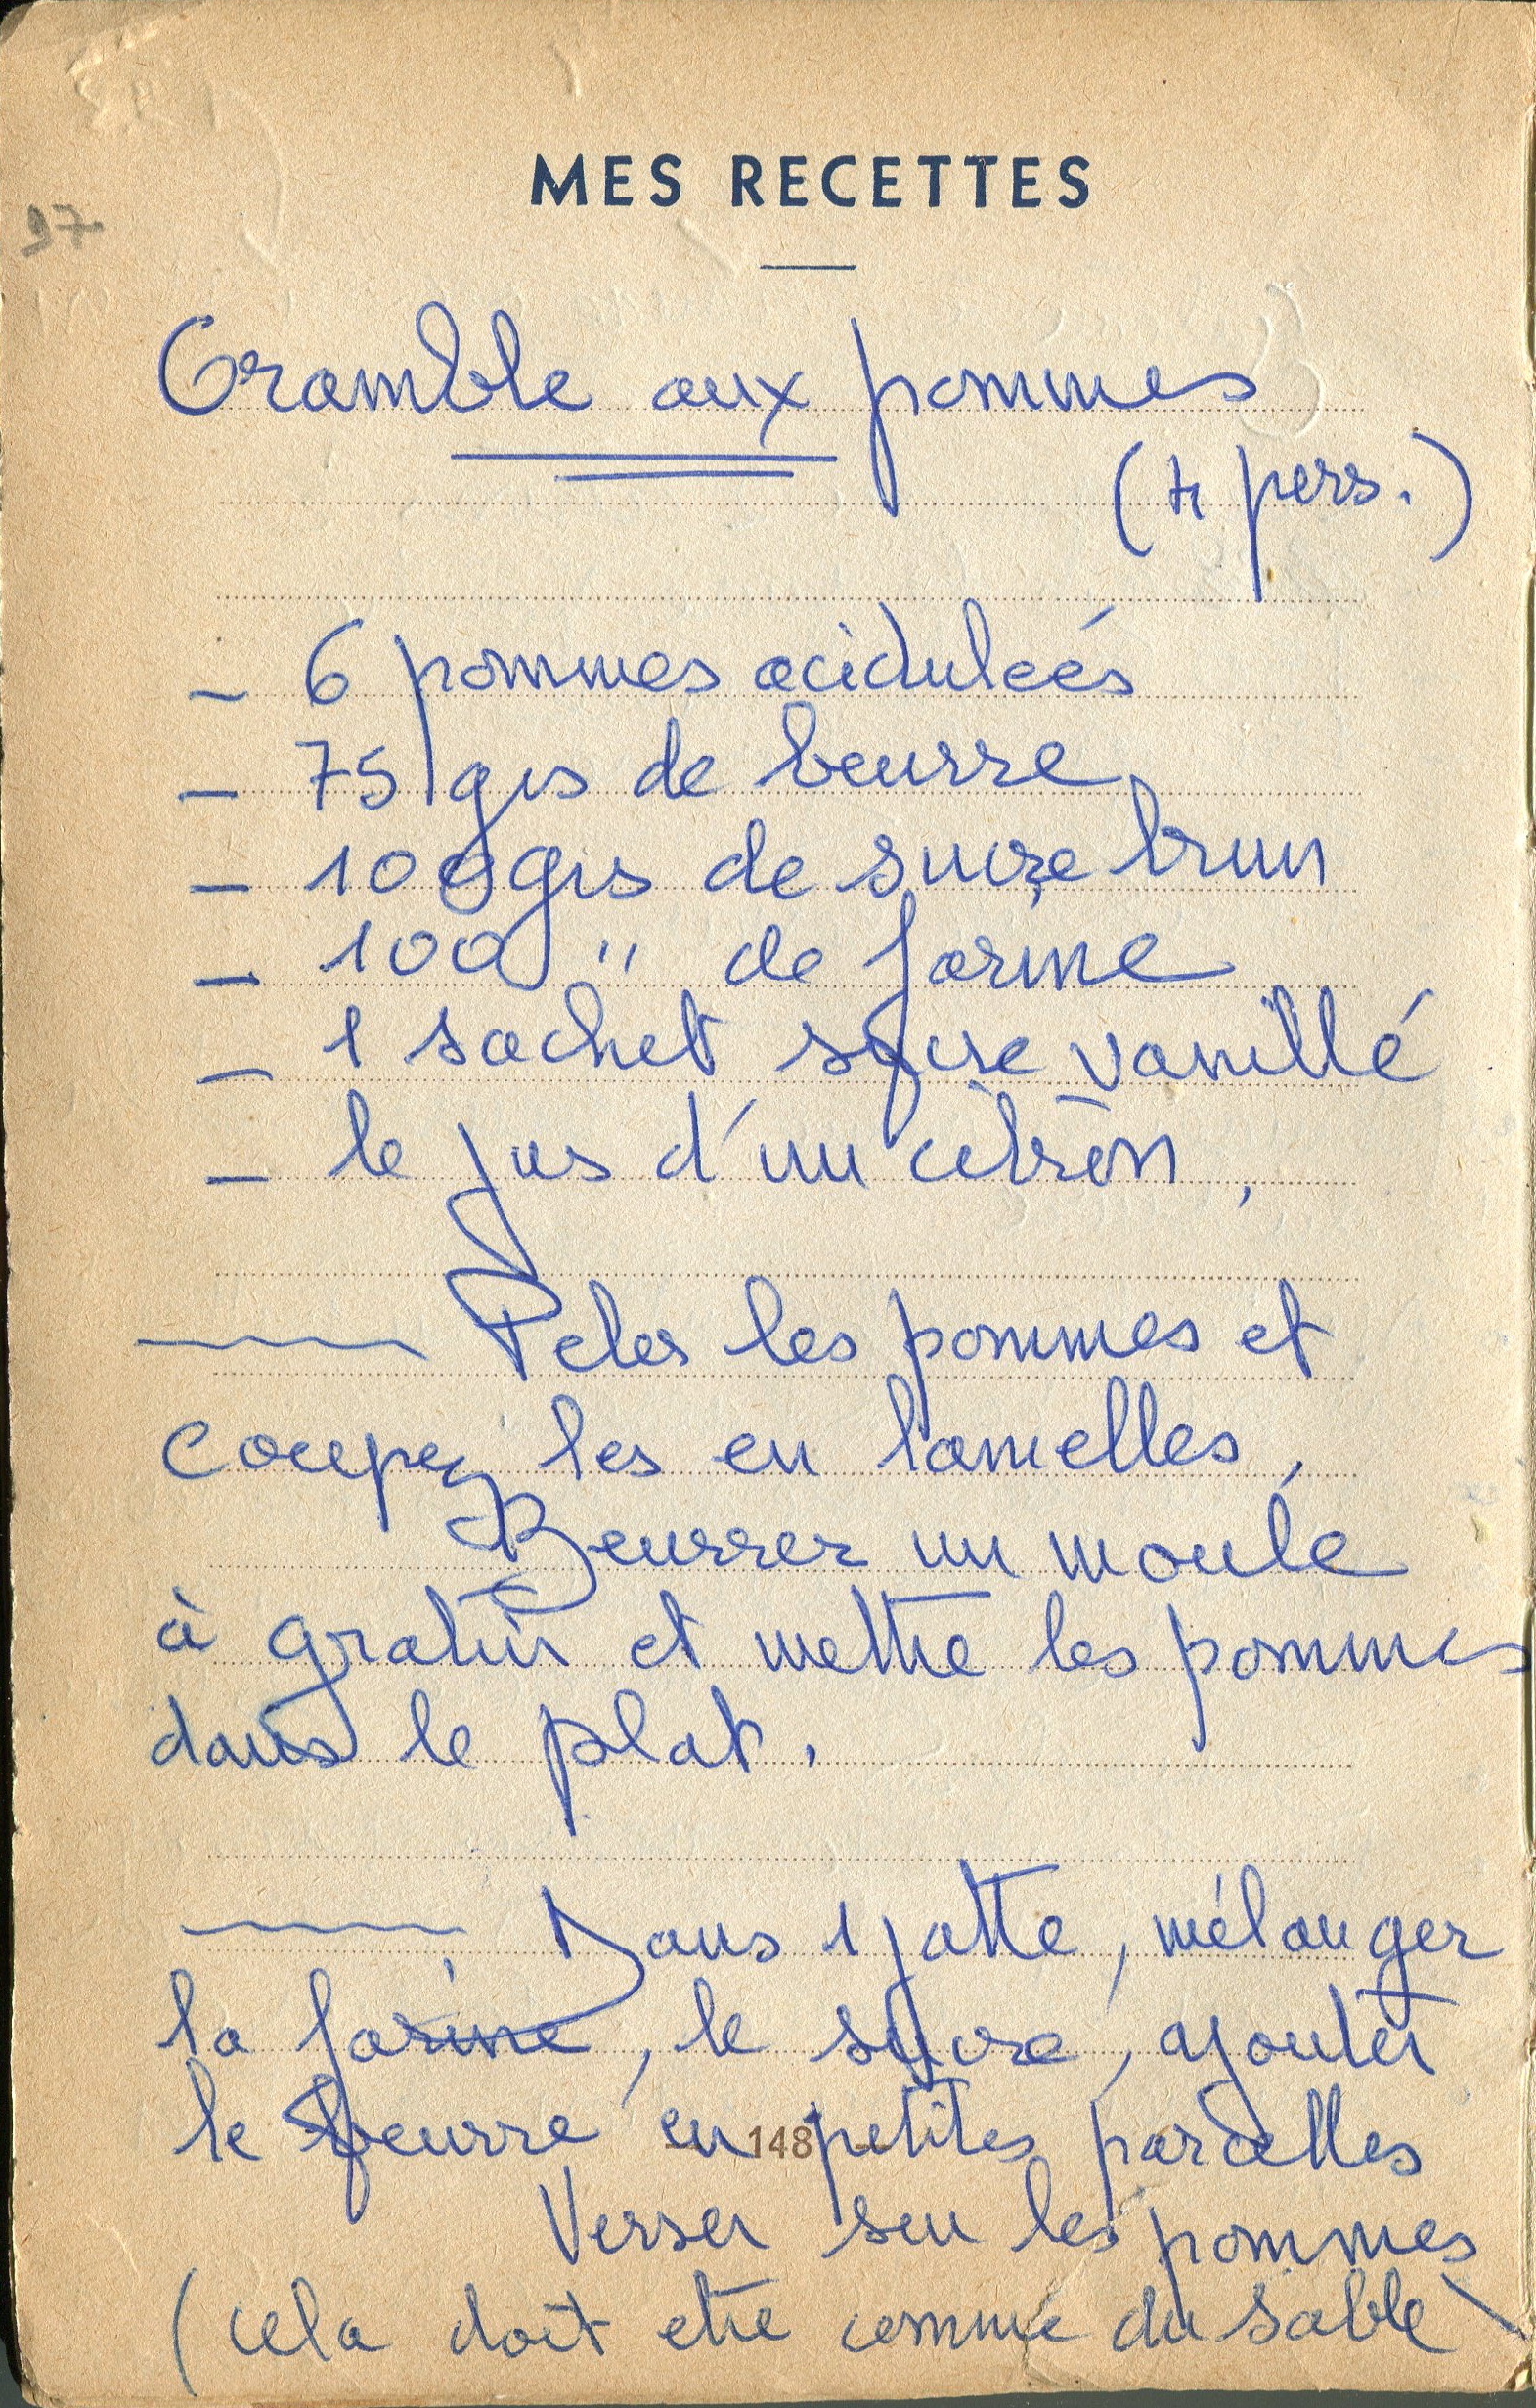 MES RECETTES
97
Cramble aux pommes
(4 pers.)
- 6 pommes acidulées
- 75 grs de beurre
- 100 grs de sucre brun
- 100 " de farine
- 1 sachet sucre vanillé
- le jus d'un citron,
Peler les pommes et
coupez les en lamelles,
Beurrer un moule
à gratin et mettre les pommes
dans le plat.
Dans 1 jatte, mélanger
la farine, le sucre, ajouter
le beurre en petites parcelles
148
Verser sur les pommes
(cela doit etre comme du sable)